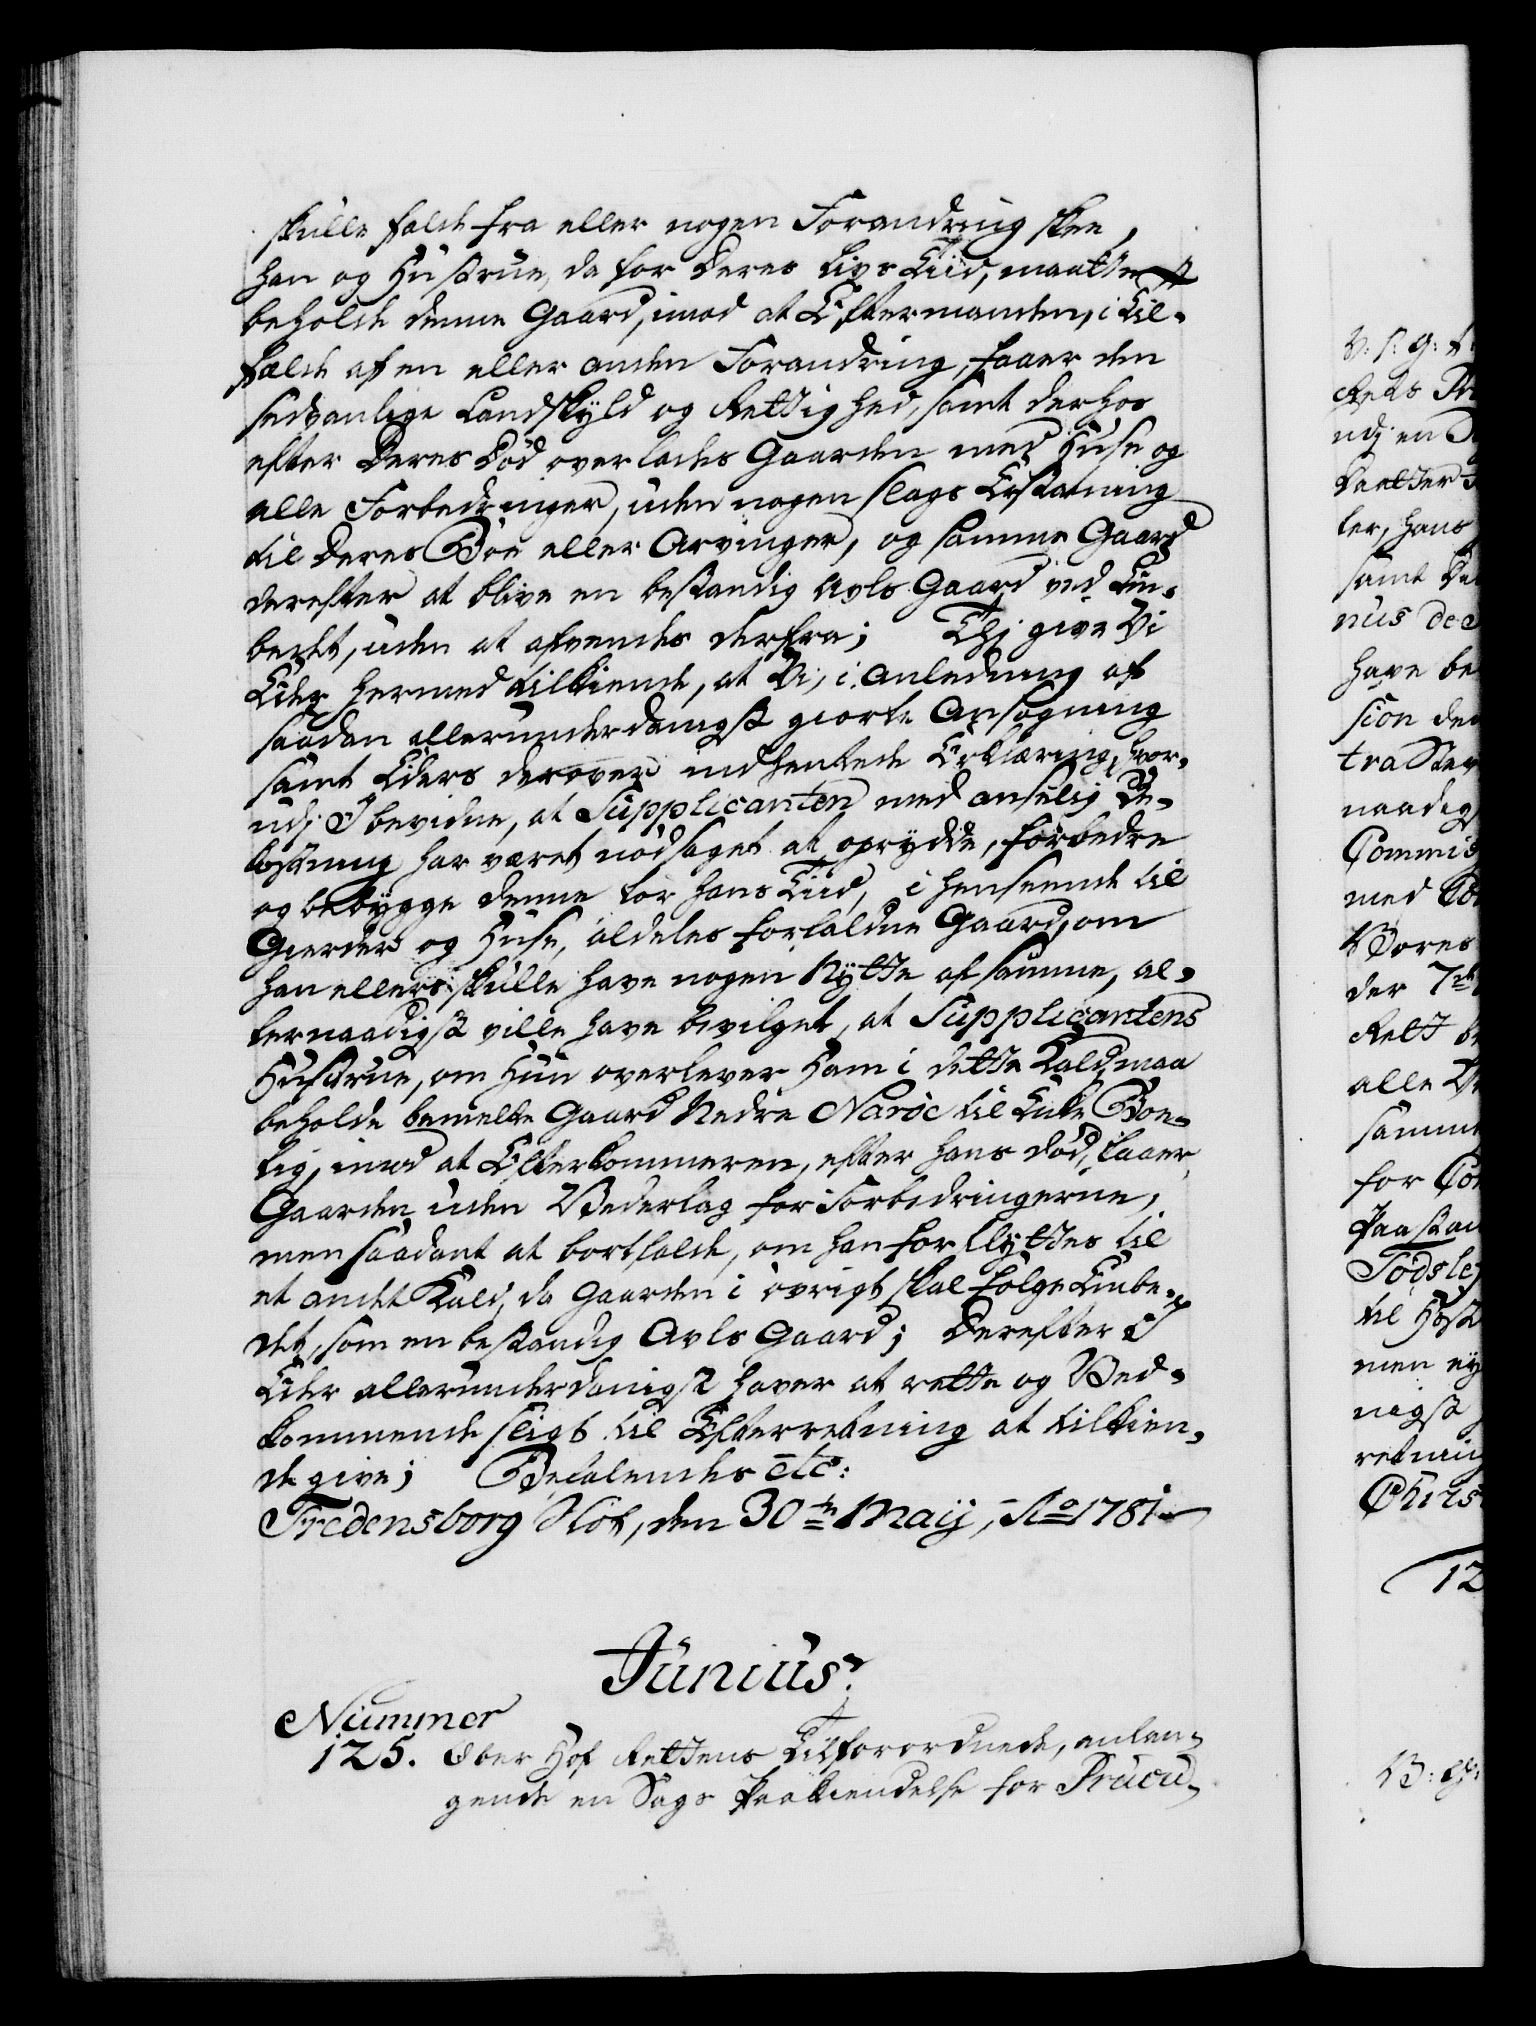 skulle falde fra eller nogen Forandring skee,
han og Hustrue, da for deres Livs Tiid, maatte
beholde denne Gaard, imod at Eftermanden, i Til-
fælde af en eller anden Forandring, faaer den
sædvanlige Landskyld og Rettighed, samt derhos
efter deres Død overlades Gaarden med Huse og
alle Forbedringer, uden nogen slags Erstatning
til deres Boe eller Arvinger, og samme Gaard
derefter at blive en bestandig Avls Gaard ved Em-
bedet, uden at afvendes derfra; Thj give Vi
Eder hermed tilkiende, at Vi, i Anledning af
saadan allerunderdanigst giorte Ansøgning
samt Eders derover indhentede Erklæring, hvor-
udj I bevidne, at Supplicanten med anselig Be-
kostning har været nødsaget at oprydde, forbedre
og bebygge denne for hans Tiid, i henseende til
Gierder og Huse, aldeles forfaldne Gaard, om
han ellers skulle have nogen Nytte af samme, al-
lernaadigst ville have bevilget, at Supplicantens
Hustrue, om Hun overlever Ham i dette Kald, maa
beholde bemelte Gaard Nedre Narøe til Enke Boe-
lig, imod at Efterkommeren, efter hans død, faaer
Gaarden uden Vederlag for Forbedringerne,
men saadant at bortfalde, om han forflyttes til
et andet Kald, da Gaarden i øvrigt skal følge Embe-
det, som en bestandig Avls Gaard; Derefter I
Eder allerunderdanigst haver at rette og Ved-
kommende sligt til Efterretning at tilkien-
de give; Befalendes etc:
Fredensborg Slot, den 30te Maij, Ao 1781
Junius.
Nummer
125. Ober Hof Rettens Tilforordnede, anlan-
gende en Sags Paakiendelse for Procu-